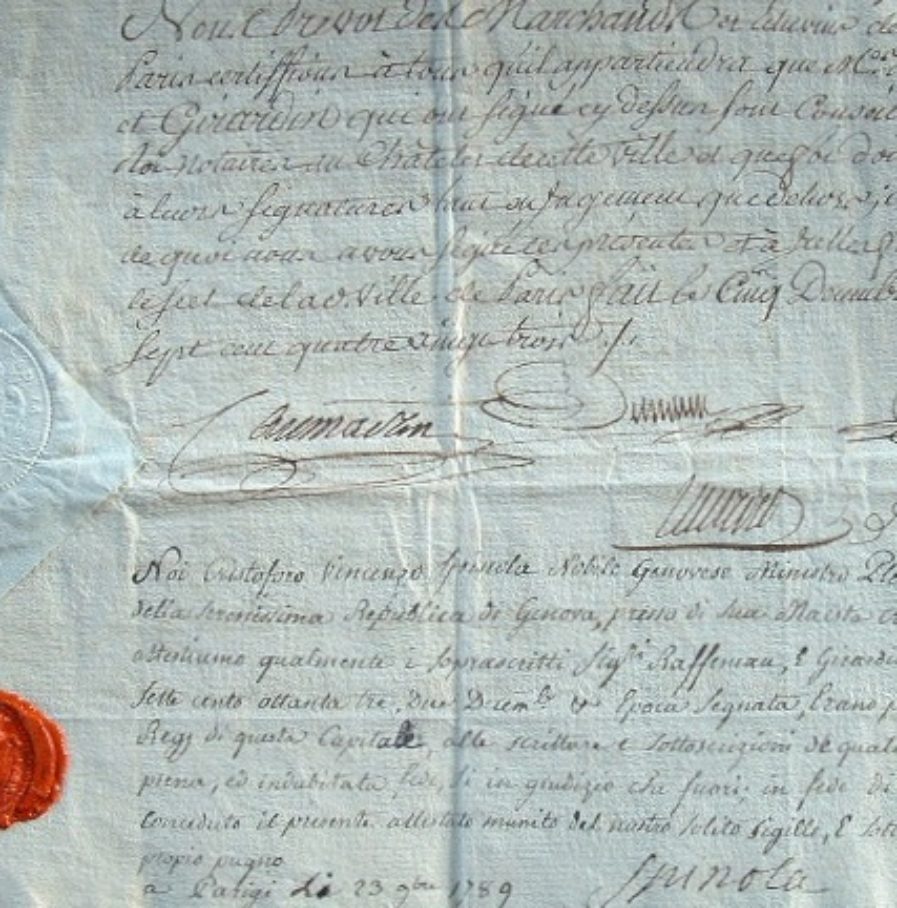 Nous Prevot des Marchands et Echevins de
Paris certiffions à tous qu'il appartiendra que Mes
et Girardin qui ont signé cy dessus sont Conseil
notaires au Châtelet de cette Ville et que foi doi
à leurs signatures tant en Jugement que dehors, e
de quoi nous avons signé ces présentes et à icelles f
le scel de lad. Ville de Paris fait le Cinq Decemb
sept cent quatre vingt trois ./.
Caumartin
Noi Cristoforo Vincenzo Spinola Nobile Genovese Ministro Ple
della Serenissima Republica di Genova, presso di Sua Maestà
attestiamo qualmente i soprascritti Sigri Raffeneau, E Girardi
Sette cento ottanta tre, Due Diembe Epoca Segnata, Erano p
Regj di questa Capitale, alle scritture e sottoscrizioni de quali
piena, ed indubitata fede, si in giudizio che fuori in fede di
Conceduto il presente attestato munito del nostro solito sigillo, E sott
propio pugno
a Parigi li 23 9bre 1789
Spinola